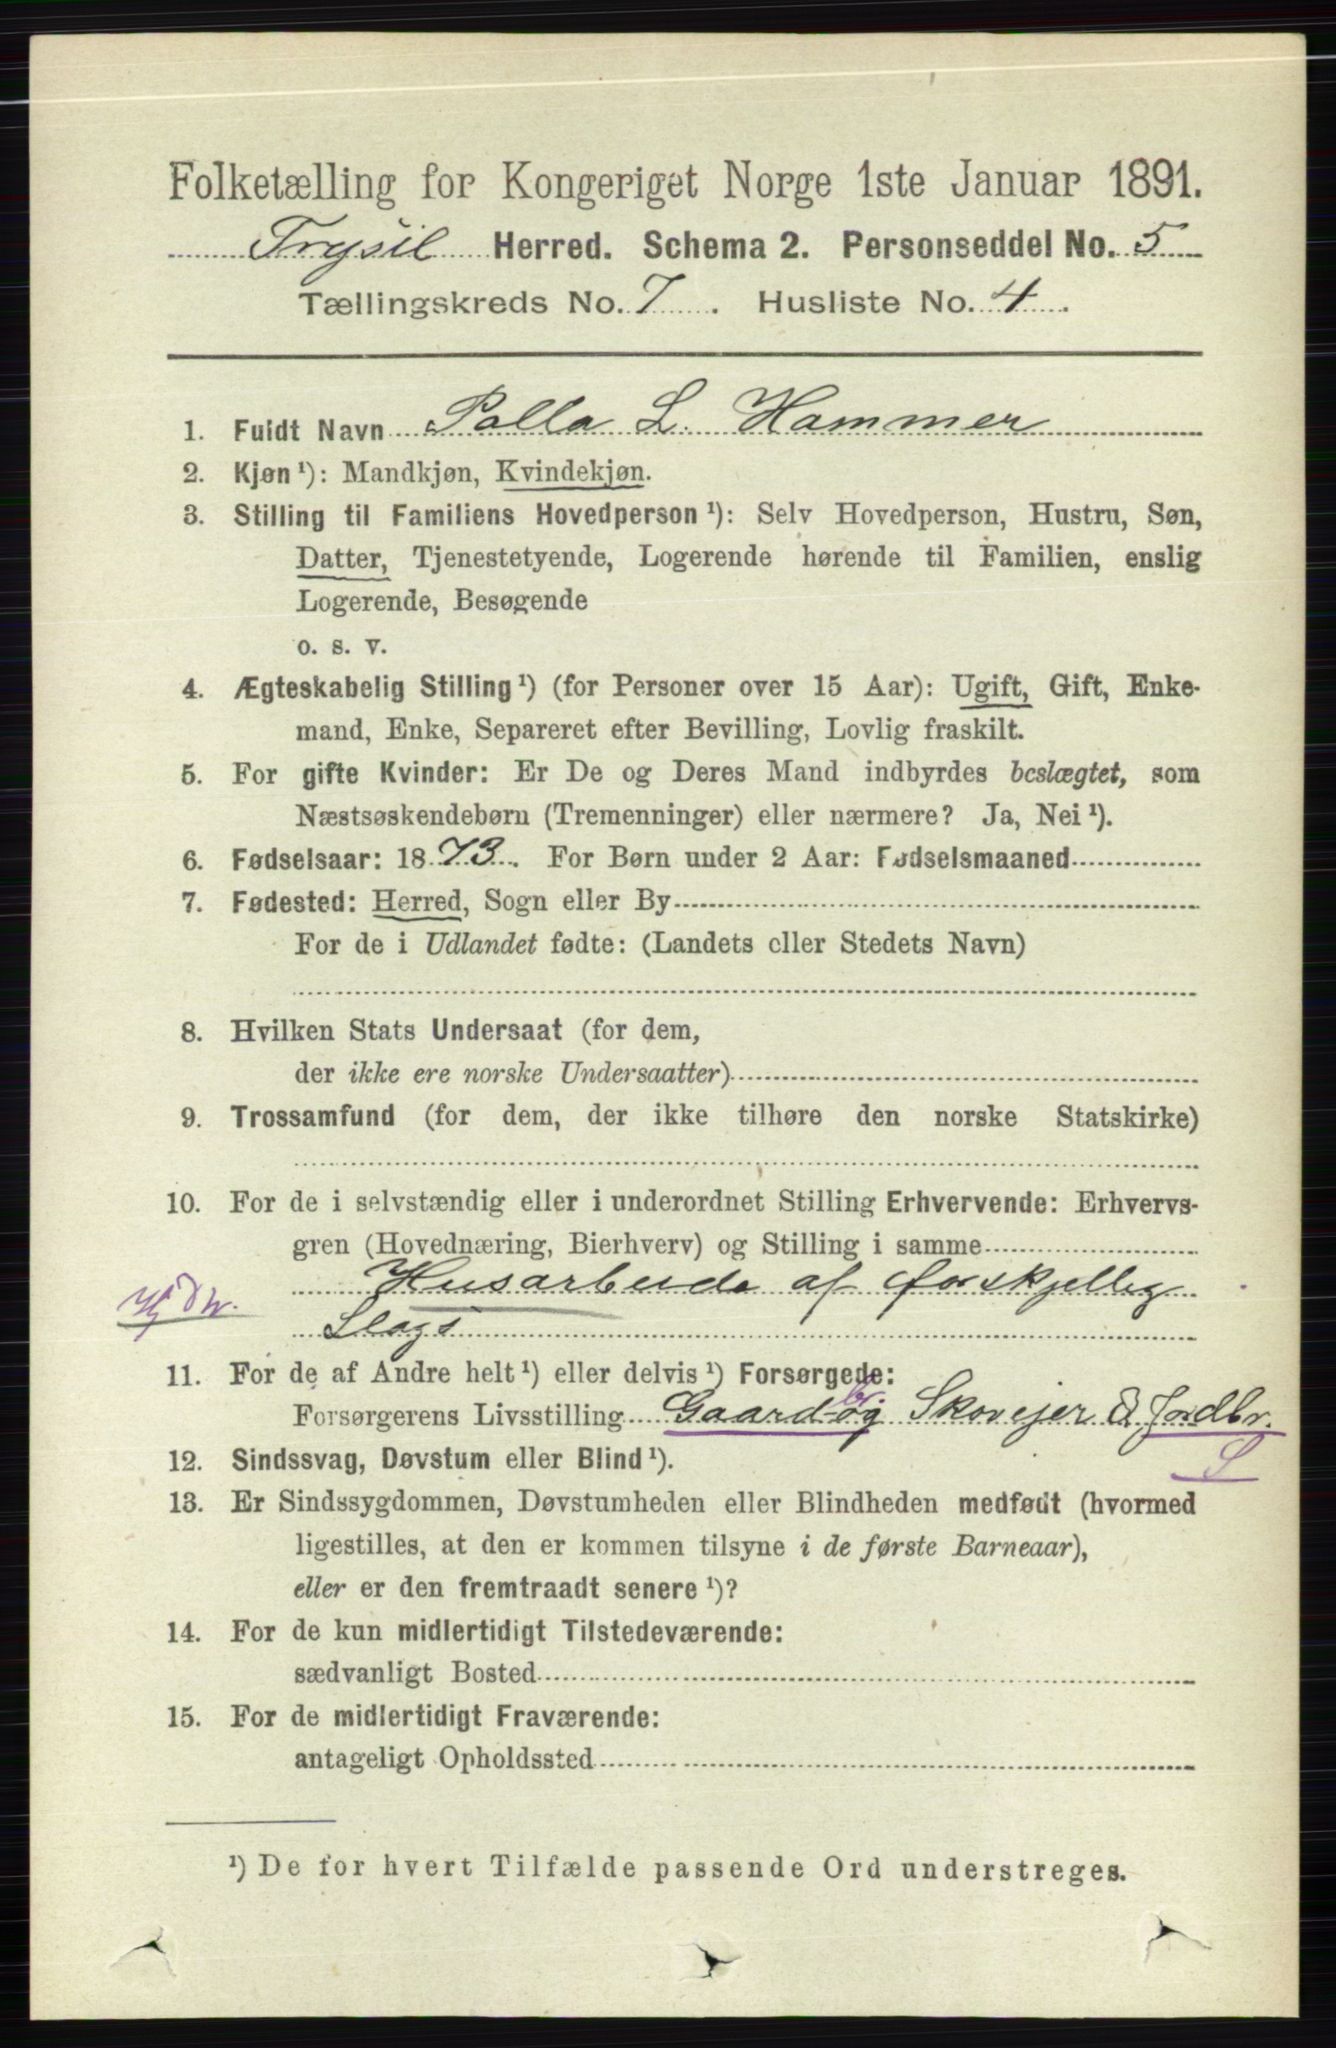 Folketælling for Kongeriget Norge 1ste Januar 1891.
Trysil Herred. Schema 2. Personseddel No. 5
Tællingskreds No. 7. Husliste No. 4.
1. Fuldt Navn Palla L. Hammer
2. Kjøn ¹): Mandkjøn, Kvindekjøn.
3. Stilling til Familiens Hovedperson ¹): Selv Hovedperson, Hustru, Søn,
Datter, Tjenestetyende, Logerende hørende til Familien, enslig
Logerende, Besøgende
o. s. v.
4. Ægteskabelig Stilling ¹) (for Personer over 15 Aar): Ugift, Gift, Enke-
mand, Enke, Separeret efter Bevilling, Lovlig fraskilt.
5. For gifte Kvinder: Er De og Deres Mand indbyrdes beslægtet, som
Næstsøskendebørn (Tremenninger) eller nærmere? Ja, Nei ¹).
6. Fødselsaar: 1873. For Børn under 2 Aar: Fødselsmaaned
7. Fødested: Herred, Sogn eller By
For de i Udlandet fødte: (Landets eller Stedets Navn)
8. Hvilken Stats Undersaat (for dem,
der ikke ere norske Undersaatter)
9. Trossamfund (for dem, der ikke tilhøre den norske Statskirke)
10. For de i selvstændig eller i underordnet Stilling Erhvervende: Erhvervs-
gren (Hovednæring, Bierhverv) og Stilling i samme
Husarbeide af forskjellig
Slags
11. For de af Andre helt ¹) eller delvis ¹) Forsørgede:
Forsørgerens Livsstilling Gaard- br. og Skovejer & Jordbr.
S
12. Sindssvag, Døvstum eller Blind ¹).
13. Er Sindssygdommen, Døvstumheden eller Blindheden medfødt (hvormed
ligestilles, at den er kommen tilsyne i de første Barneaar),
eller er den fremtraadt senere ¹)?
14. For de kun midlertidigt Tilstedeværende:
sædvanligt Bosted
15. For de midlertidigt Fraværende:
antageligt Opholdssted
¹) De for hvert Tilfælde passende Ord understreges.